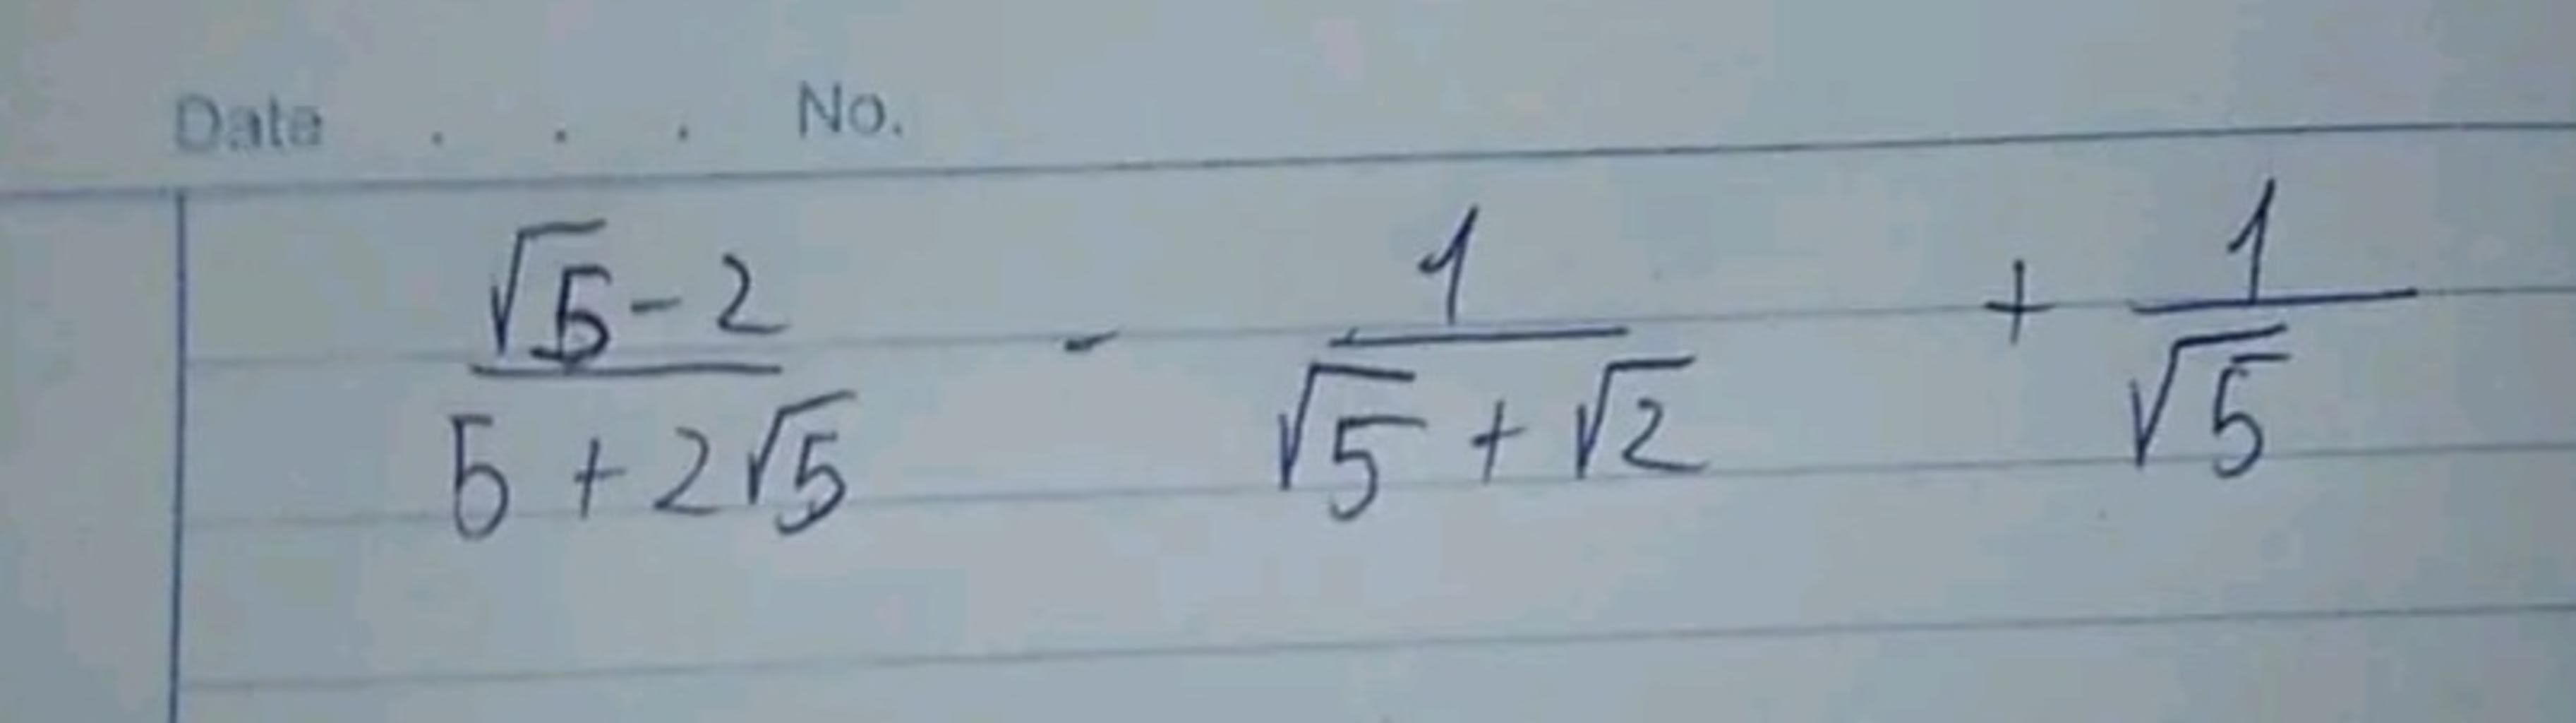 Date . . . No.
(√5 - 2)/(5 + 2√5) - 1/(√5 + √2) + 1/√5